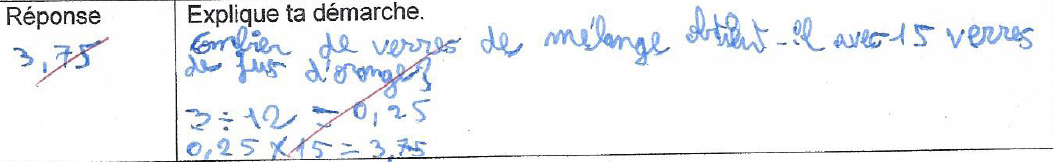 Réponse
Explique ta démarche.
3,75
Combien de verres de mélange obtient-il avec 15 verres
de jus d'orange?
3 ÷ 12 = 0,25
0,25 × 15 = 3,75